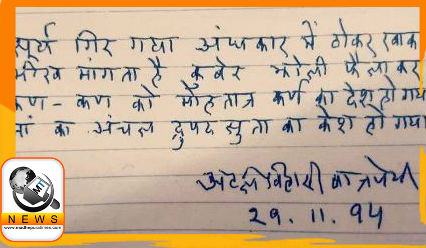 सूर्य गिर गया अंधकार में ठोकर खाकर
भीख मांगता है कुबेर झोली फैलाकर
कण-कण को मोहताज कर्ण का देश हो गया
मां का अंचल द्रुपद सुता का केश हो गया
अटल बिहारी वाजपेयी
29.11.94
MT
NEWS
www.madhepuratimes.com